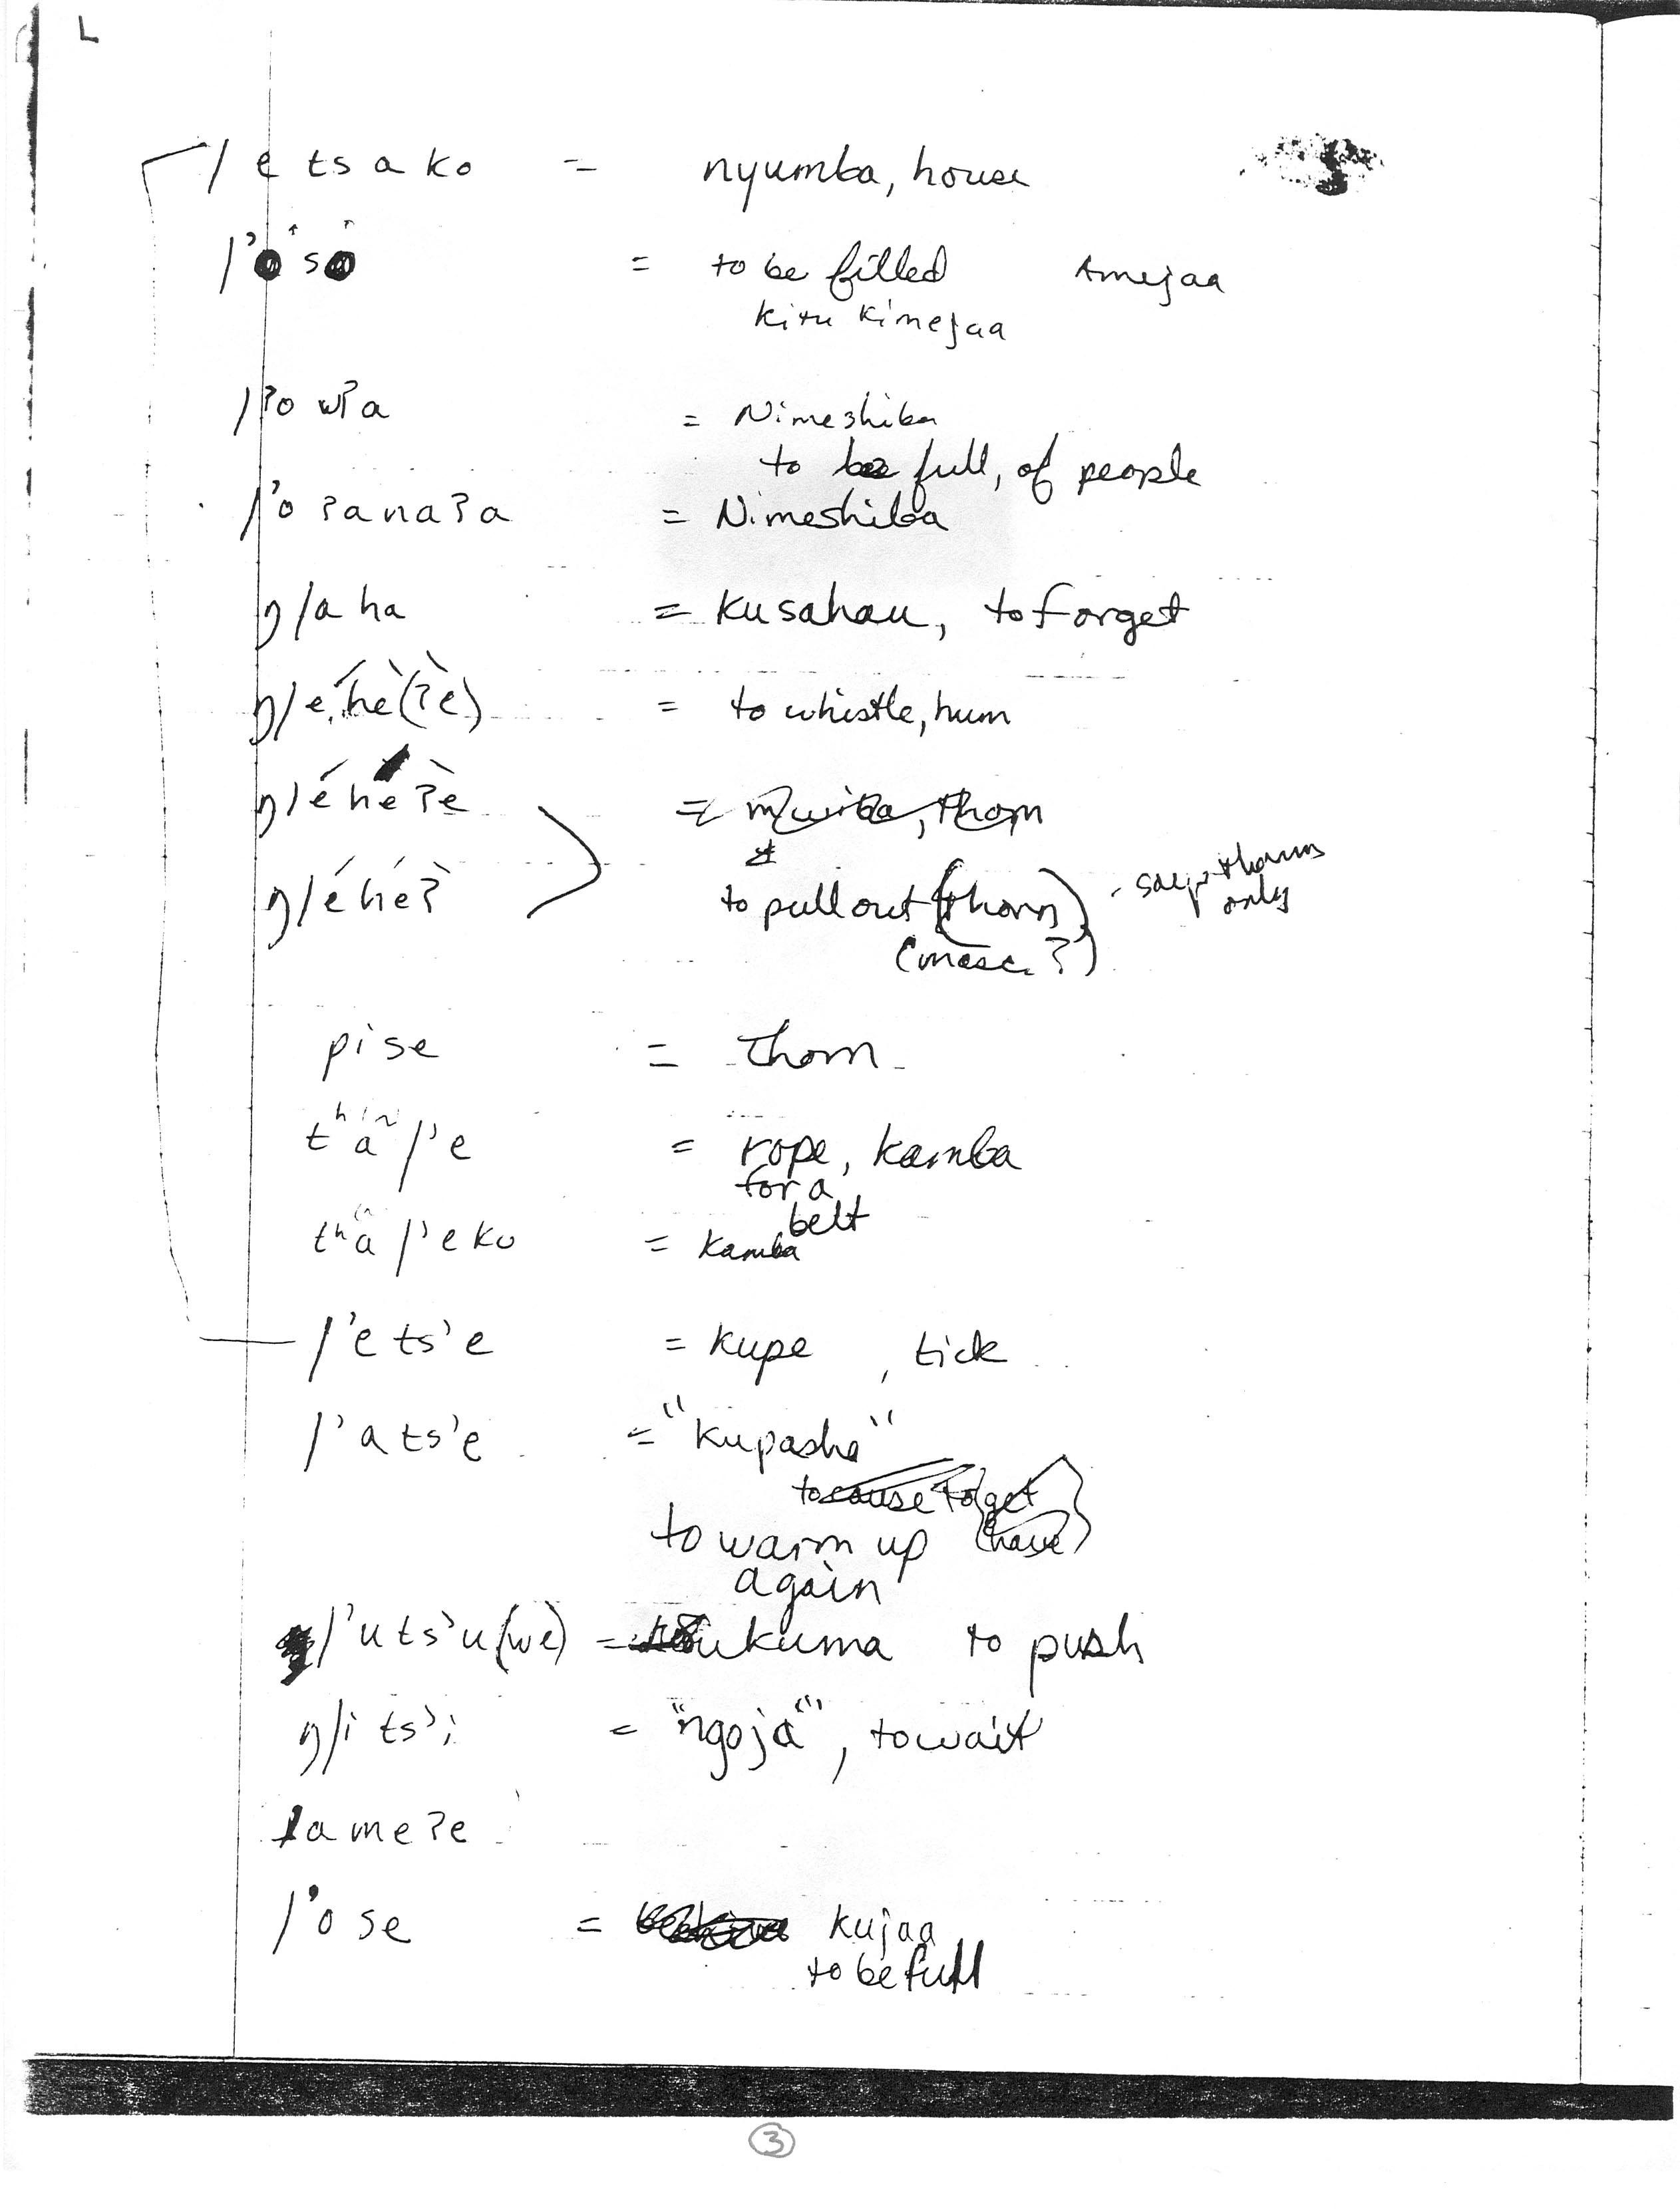 L
/ e ts a ko = nyumba, house
/’o so = to be filled Amejaa
kitu kimejaa
/ʔo wʔa = Nimeshiba
to be full, of people
/’o ʔanaʔa = Nimeshiba
ŋ/a ha = kusahau, to forget
ŋ/é hè(ʔè) = to whistle, hum
ŋ/é heʔè = mwiba, thorn
ŋ/é héʔ to pull out (thorn) - says thorns only
(masc. ?)
pise = thorn
tʰã/’e = rope, kamba
for a belt
tʰã/’eko = kamba
/’e ts’e = kupe, tick
/’a ts’e = "kupasha"
to cause to {get
have}
to warm up
again
/’u ts’u(we) = sukuma to push
ŋ/i ts’i = "ngoja", to wait
/ameʔe
/’o se = kujaa
to be full
3